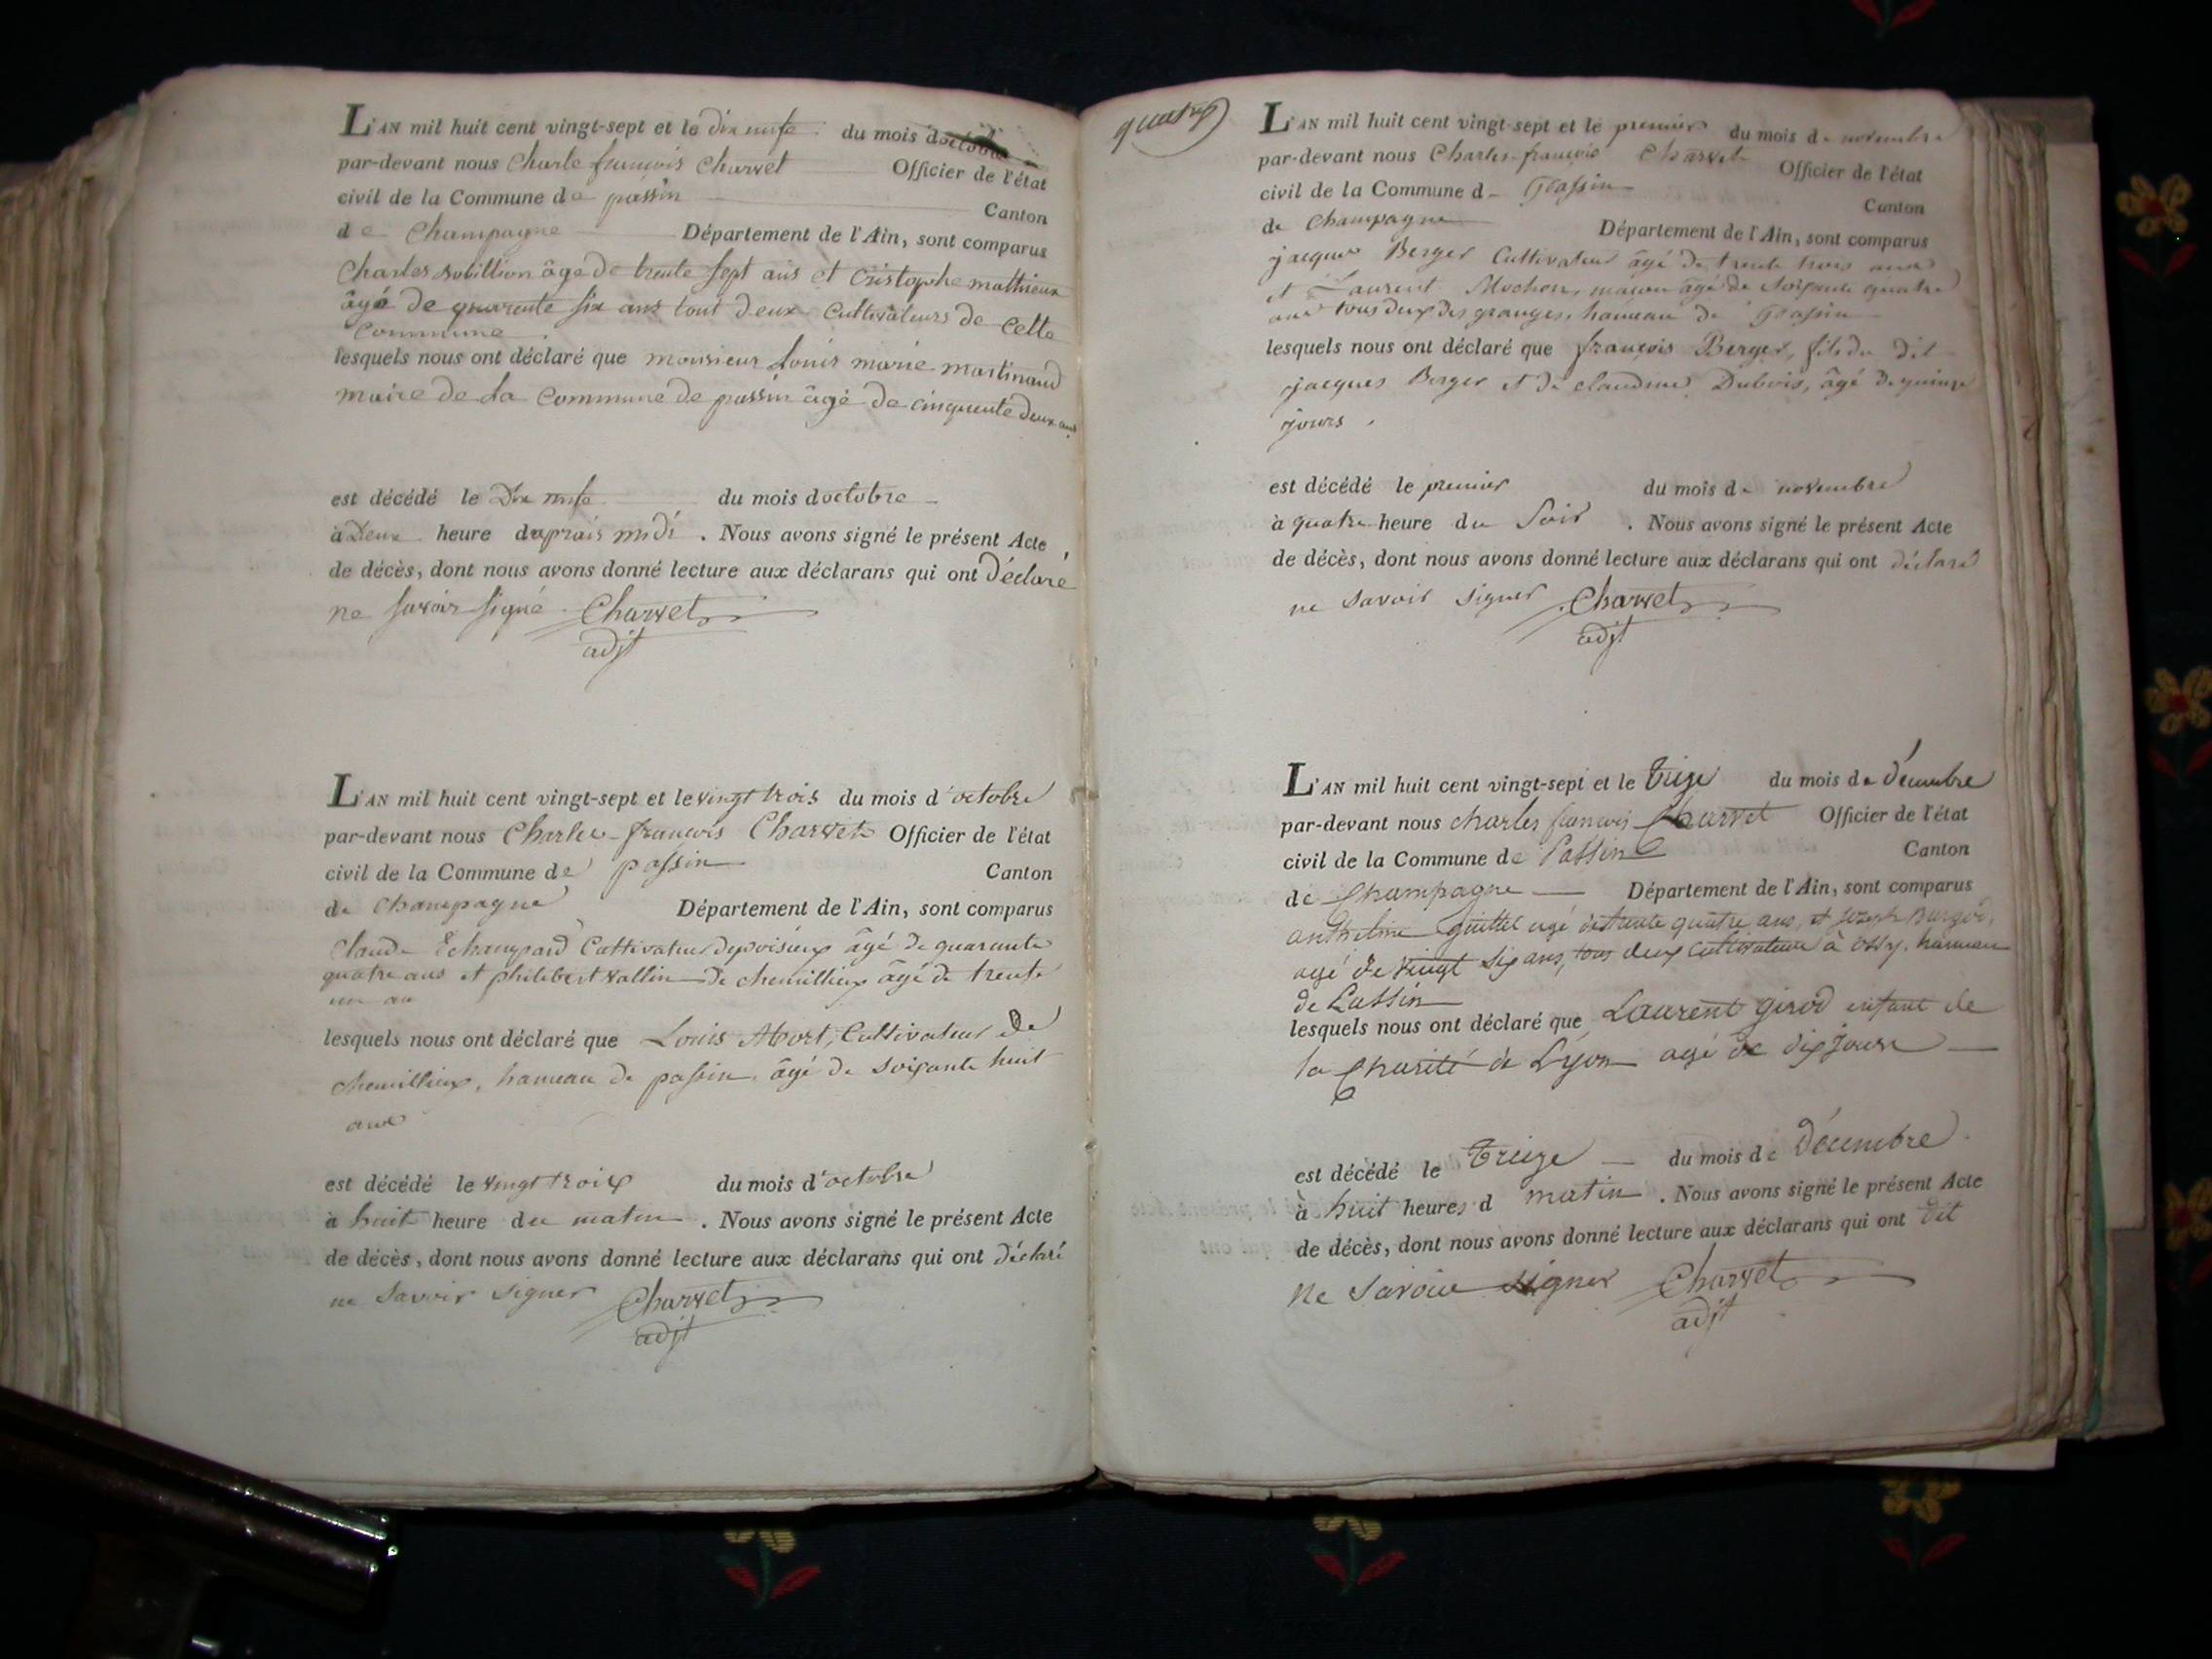 L'AN mil huit cent vingt-sept et le dix neufe du mois doctobre
par-devant nous Charle françois Charvet Officier de l'état
civil de la Commune de passin
Canton
de Champagne Département de l'Ain, sont comparus
Charles âgé de trente sept ans et Cristophe mathieux
âgé de quarente six ans tout deux Cultivateurs de Cette
Commune
lesquels nous ont déclaré que monsieur Louis marie martinand
maire de La Commune de passin âgé de cinquente deux ans
est décédé le Dix neufe du mois doctobre
à Deux heure daprais midi . Nous avons signé le présent Acte
de décès, dont nous avons donné lecture aux déclarans qui ont déclaré
ne savoir signé Charvet
adjt
L'AN mil huit cent vingt-sept et le vingt trois du mois d'octobre
par-devant nous Charles françois Charvet Officier de l'état
civil de la Commune de passin Canton
de Champagne Département de l'Ain, sont comparus
Claude Echampard Cultivateur depoisieux âgé de quarante
quatre ans et philibert vallin de chemillieux âgé de trente
un an
lesquels nous ont déclaré que Louis Cultivateur de
chemillieux, hameau de passin, âgé de soixante huit
ans
est décédé le vingt trois du mois d'octobre
à huit heure du matin . Nous avons signé le présent Acte
de décès, dont nous avons donné lecture aux déclarans qui ont déclaré
ne savoir signer Charvet
adjt
L'AN mil huit cent vingt-sept et le premier du mois de novembre
par-devant nous Charles françois Charvet Officier de l'état
civil de la Commune d Passin Canton
de Champagne Département de l'Ain, sont comparus
jacques Berger Cultivateur âgé de trente trois ans
et Laurent Mochon, maçon âgé de soixante quatre
ans tous deux des granges, hameau de Passin
lesquels nous ont déclaré que françois Berger, fils du dit
jacques Berger et de claudine Dubois, âgé de quinze
jours .
est décédé le premier du mois de novembre
à quatre heure du Soir . Nous avons signé le présent Acte
de décès, dont nous avons donné lecture aux déclarans qui ont déclaré
ne savoir signer Charvet
adjt
L'AN mil huit cent vingt-sept et le treize du mois de décembre
par-devant nous charles francois Charvet Officier de l'état
civil de la Commune de Passin Canton
de Champagne Département de l'Ain, sont comparus
anthelme agé detrente quatre ans, et joseph
agé de vingt six ans, tous deux cultivateurs à ossy, hameau
de Passin
lesquels nous ont déclaré que Laurent girod enfant de
la Charité de Lyon agé de dix jours
est décédé le Treize du mois de Décembre
à huit heures d matin . Nous avons signé le présent Acte
de décès, dont nous avons donné lecture aux déclarans qui ont dit
ne savoir signer Charvet
adjt